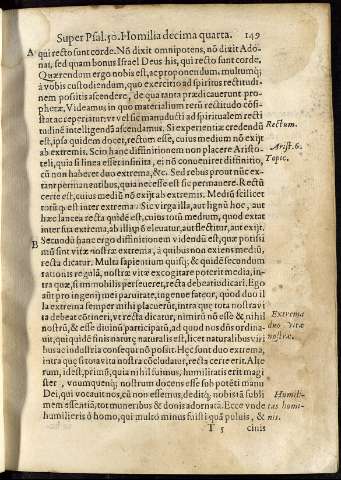 Super Psal.50. Homilia decima quarta. 149
A qui recto sunt corde. Nõ dixit omnipotens, nõ dixit Ado-
nai, sed quam bonus Israel Deus his, qui recto sunt corde.
Quærendum ergo nobis est, ac proponendum, multumq;
à vobis custodiendum, quo exercitio ad spiritus rectitudi-
nem possitis ascendere, de qua tanta prædicauerunt pro-
phetæ. Videamus in quo materialium rerũ rectitudo cõsi-
stat ac reperiatur: vt vel sic manuducti ad spiritualem recti
tudinẽ intelligendã ascendamus. Si experientiæ credendũ
est, ipsa quidem docet, rectum esse, cuius medium nõ exijt
ab extremis. Scio hanc diffinitionem non placere Aristo-
teli, quia si linea esset infinita, ei nõ conueniret diffinitio,
cũ non haberet duo extrema, &c. Sed rebus prout nũc ex-
tant permanentibus, quia necesse est sic permanere. Rectũ
certe est, cuius mediũ nõ exijt ab extremis. Mediũ scilicet
totũ qd est inter extrema. Sic virga illa, aut lignũ hoc, aut
hæc lancea recta quidẽ est, cuius totũ medium, quod extat
inter sua extrema, ab illis nõ eleuatur, aut flectitur, aut exijt.
B Secundũ hanc ergo diffinitionem videndũ est, quæ potissi
mũ sint vitæ nostræ extrema, à quibus non exiens mediũ,
recta dicatur. Multa sapientium quisq; & quidẽ secundum
rationis regulã, nostræ vitæ excogitare poterit media, in-
tra quæ, si immobilis perseueret, recta debeat iudicari. Ego
aũt pro ingenij mei paruitate, ingenue fateor, quòd duo il
la extrema semper mihi placuerũt, intra quæ tota nostra vi
ta debeat cõtineri, vt recta dicatur, nimirũ nõ esse & nihil
nostrũ, & esse diuinũ participatũ, ad quod nos dñs ordina-
uit, qui quidẽ finis naturę supernaturalis est, licet naturalibus viri
bus ac industria consequi nõ possit. Hęc sunt duo extrema,
intra quę si tota vita nostra cõcludatur, recta certe erit. Alte
rum, id est, primũ, quia nihil suimus, humilitatis erit magi
ster, vnumquenq; nostrum docens esse sub potẽti manu
Dei, qui vocauit nos, cũ non essemus, deditq; nobis tã subli
mem essentiã, tot muneribus & donis adornatã. Ecce vnde
humilieris ô homo, qui multò minus fuisti quã puluis, &
T 5 cinis
Rectum.
Arist. 6.
Topic.
Extrema
duo vitæ
nostræ.
Humili-
tas homi-
nis.